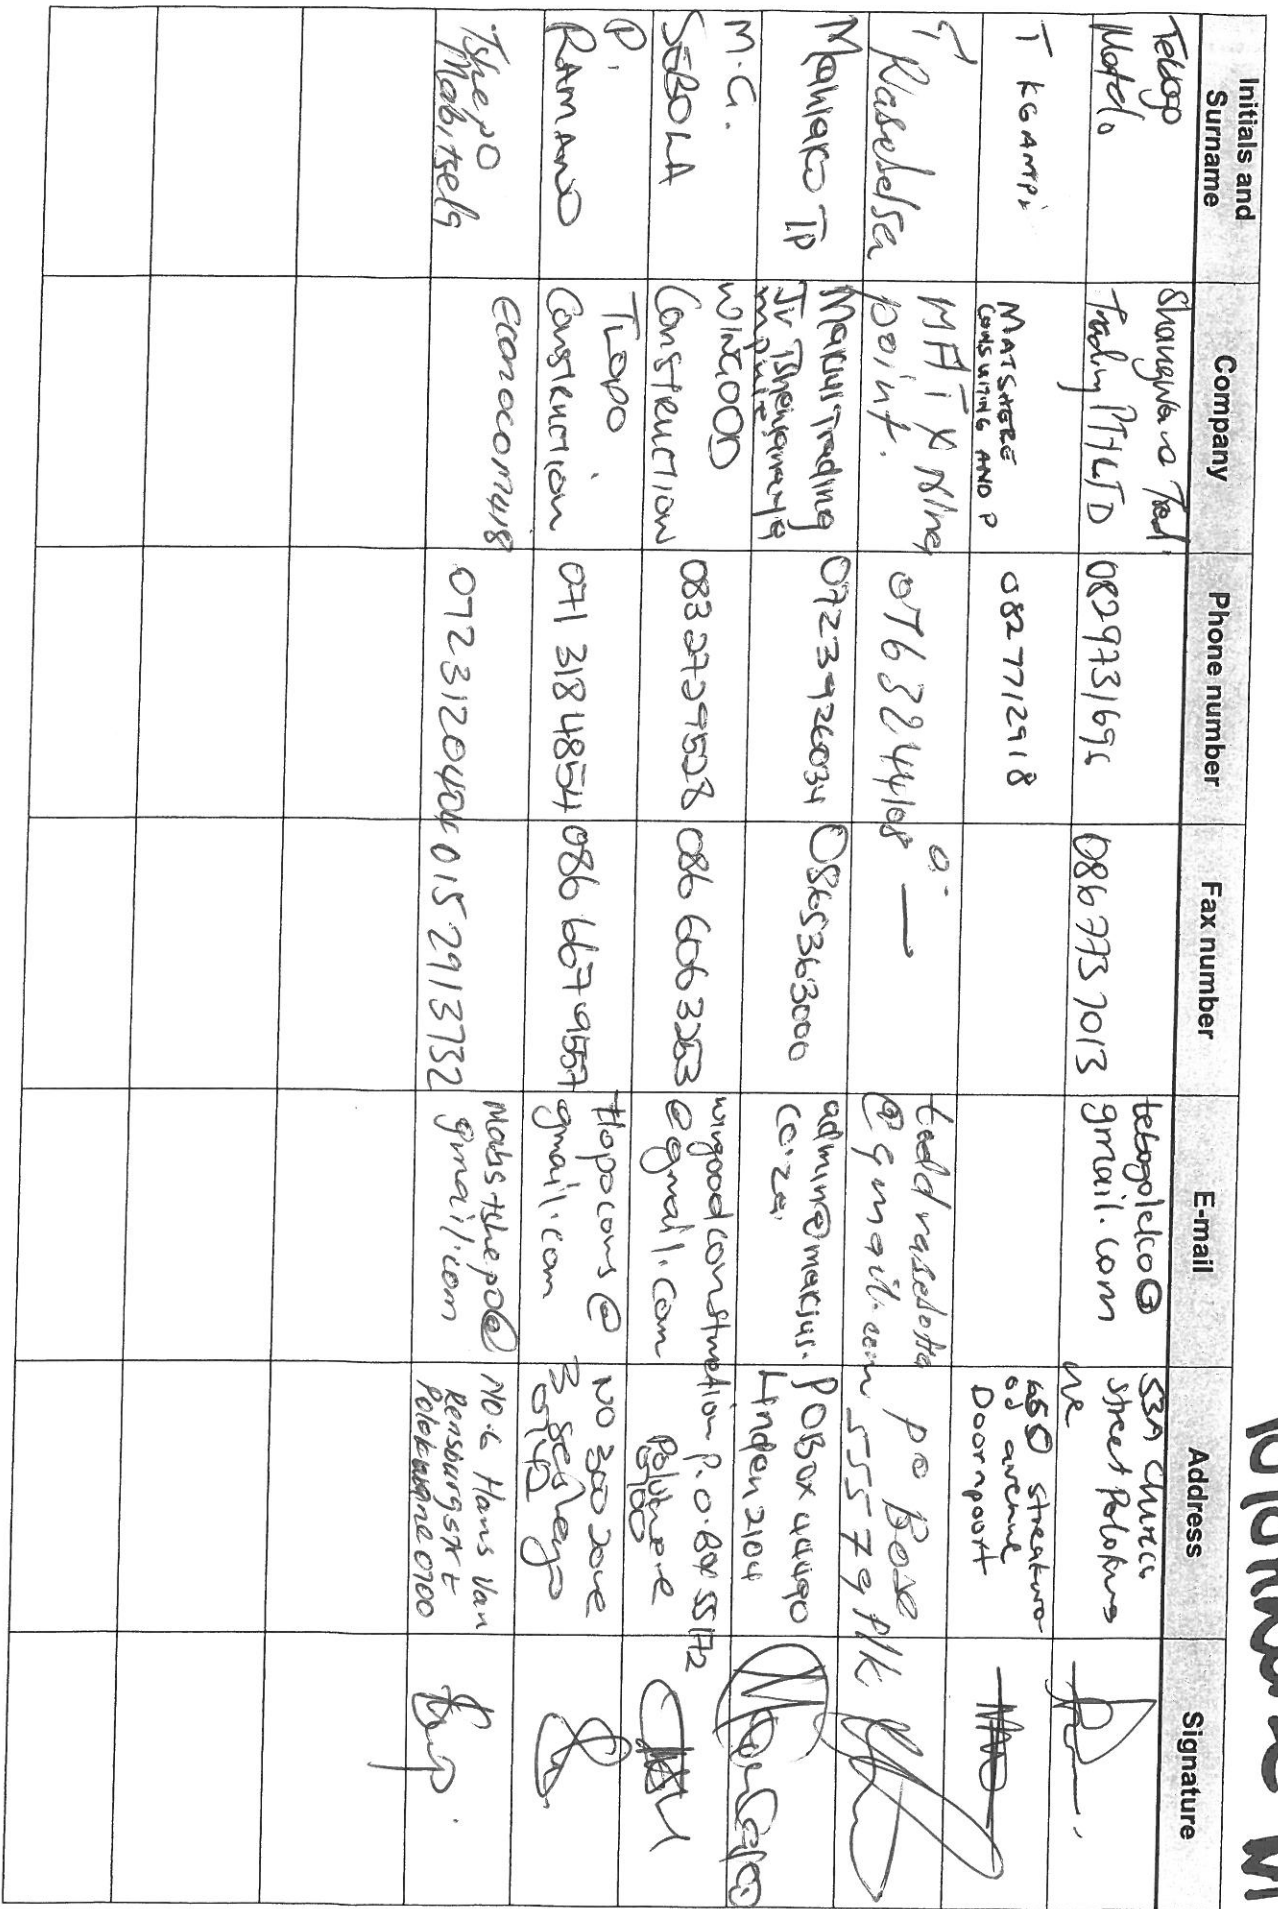 Initials and Surname Company Phone number Fax number E-mail Address Signature
Tebogo
Shangwana Trad.
Trading PTY LTD 0829731696 0867737013
tebogolelco@
gmail.com
53A Church
street Polokwa
ne
T KGAMPI
MATSHERE
CONSULTING AND P
082 7712918
658 streakwo
od avenue
Doornpoort
T Rasebotsa
MATX
point.
0763244108 —
@gmail.com
po Box
55579 Plk
Mahlako TP
Marius Trading
JV Tshenyameya
0723926034 0865363000
admin@marius.
co.za
PO Box 44490
Linden 2104
M.G.
SEBOLA
WINGOOD
Construction
0832729528 086 6063253
wingoodconstruction
@gmail.com
P.O.Box 55172
Polokwane
0700
P.
RAMANO
TLOPO
Construction
071 318 4854 086 667 9557
tlopocons@
gmail.com
NO 300 Zone
3 Seshego
0742
Tshepo
Mabitsela
0723120404 015 291 3732
Mabstshepo@
gmail.com
No.6 Hans Van
Rensburg str
Polokwane 0700